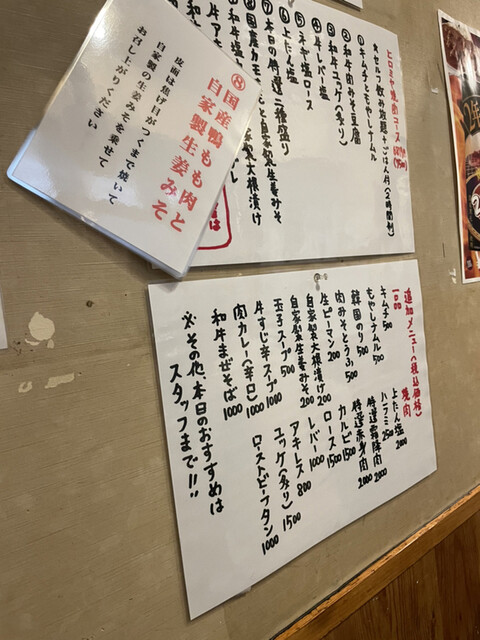 ヒロミヤ焼肉コース
☆セルフ飲み放題+ごはん付(2時間制)
①キムチともやしナムル
②和牛肉みそ豆腐
③和牛ユッケ(炙り)
④牛レバー塩
⑤ネギ塩ロース
⑥上たん塩
⑦本日の特選二種盛り
自家製大根漬け
自家製生姜みそ
⑧国産
和牛塩
牛ア
⑧国産鴨もも肉と
自家製生姜みそ
皮面は焦げ目がつくまで焼いて
自家製の生姜みそを乗せて
お召し上がりください
追加メニュー(税込価格)
一品
キムチ 500
もやしナムル 500
韓国のり 500
肉みそとうふ 500
生ピーマン 200
自家製大根漬け 200
自家製生姜みそ 200
玉子スープ 500
牛すじ辛スープ 1000
肉カレー(辛口) 1000
和牛まぜそば 1000
焼肉
上たん塩 2000
ハラミ 2500
特選霜降肉 2000
特選赤身肉 2000
カルビ 1500
ロース 1500
レバー 1000
アキレス 800
ユッケ(炙り) 1500
ローストビーフタン 1000
※その他、本日のおすすめは
スタッフまで!!